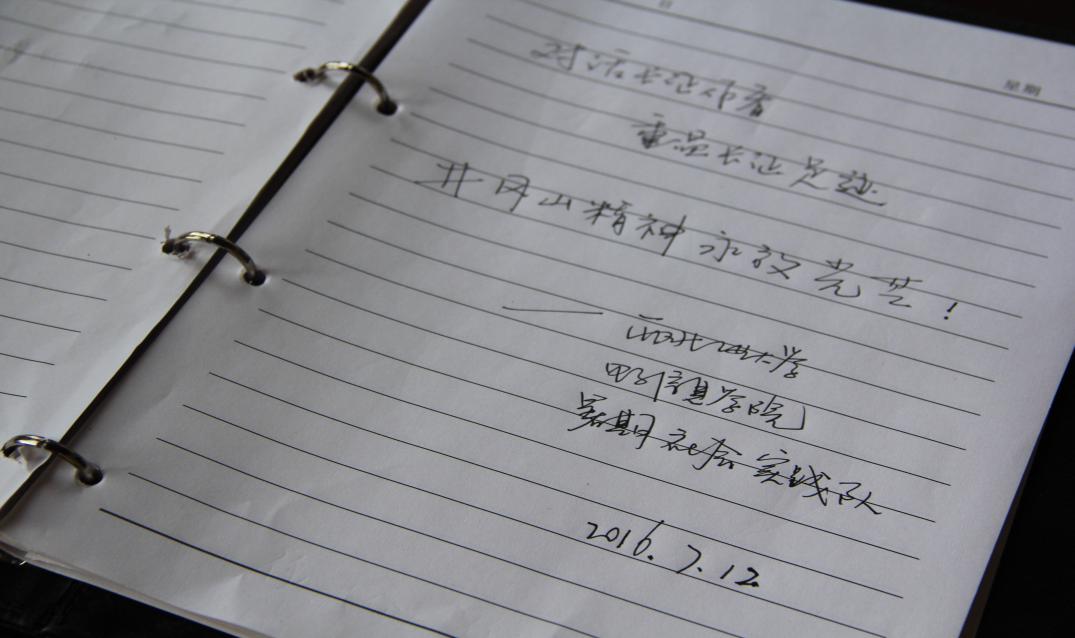 日 星期
对话长征作者
重温长征足迹
井冈山精神永放光芒!
—— 西北工业大学
电子信息学院
暑期社会实践队
2016.7.12.